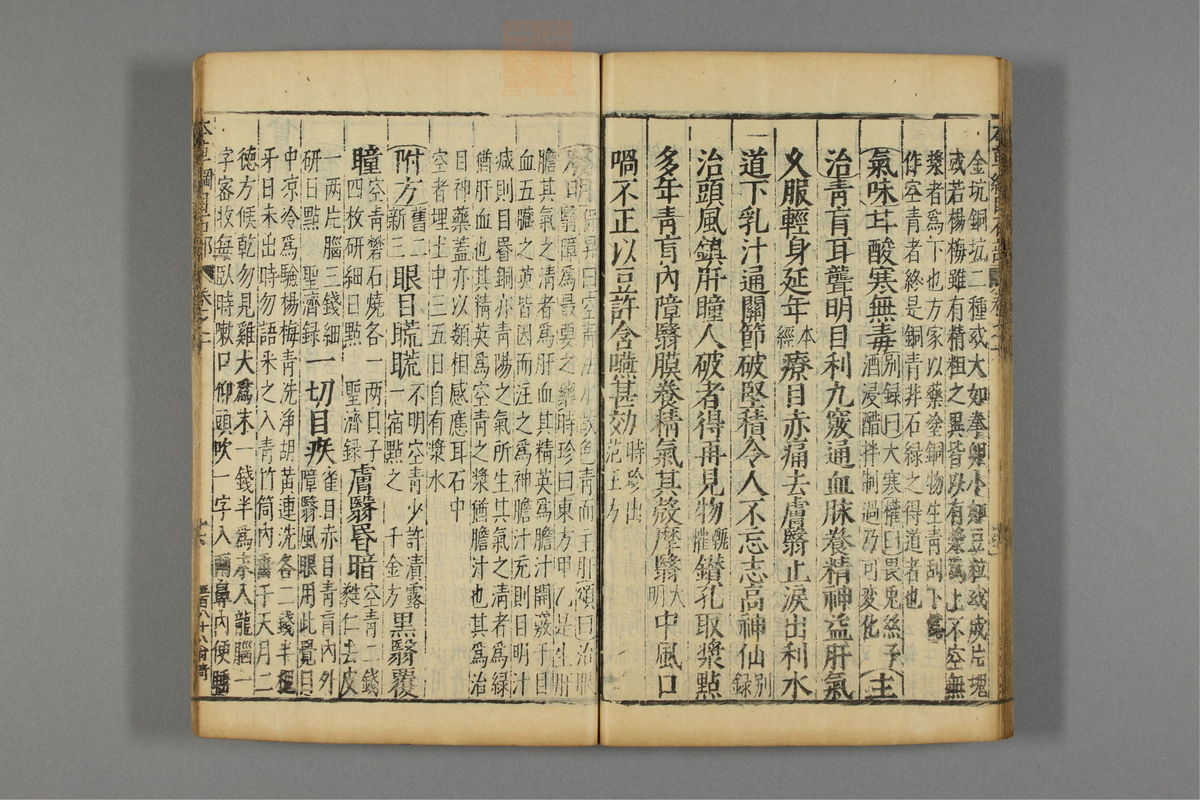 金坑銅坑二種或大如拳卵小如豆粒或成片塊
或若楊梅雖有精粗之異皆以有漿為上不空無
漿者為下也方家以藥塗銅物生青刮下
作空青者終是銅青非石綠之得道者也
氣味甘酸寒無毒別録曰大寒權曰畏兔絲子酒浸醋拌制過乃可變化主
治青盲耳聾明目利九竅通血脉養精神益肝氣
久服輕身延年本經療目赤痛去膚翳止淚出利水
道下乳汁通關節破堅積令人不忘志高神仙別録
治頭風鎮肝瞳人破者得再見物甄權鑚孔取漿點
多年青盲內障翳膜養精氣其殻摩翳大明中風口
喎不正以豆許含嚥甚効時珍出范汪方
曰治眼
翳障為最要之藥時珍曰東方甲乙是生肝
膽其氣之清者為肝血其精英為膽汁開竅于目
血五臟之英皆因而注之為神膽汁充則目明汁
減則目昏銅亦青陽之氣所生其氣之清者為綠
猶肝血也其精英為空青之漿猶膽汁也其為治
目神藥蓋亦以類相感應耳石中
空者埋土中三五日自有漿水
附方舊二新三眼目䀮䀮不明空青少許漬露一宿點之 千金方黑翳覆
瞳空青礬石燒各一兩貝子四枚研細日點 聖濟録膚翳昏暗空青二錢蕤仁去皮
一兩片腦三錢細
研日點 聖濟録一切目疾雀目赤目青盲內外障翳風眼用此覺目
中凉冷為驗楊梅青洗淨胡黃連洗各二錢半槐
牙日未出時勿語采之入青竹筒內垂于天月二
德方候乾勿見雞犬為末一錢半為末入龍腦一
字密收每臥時漱口仰頭吹一字入兩鼻內便睡